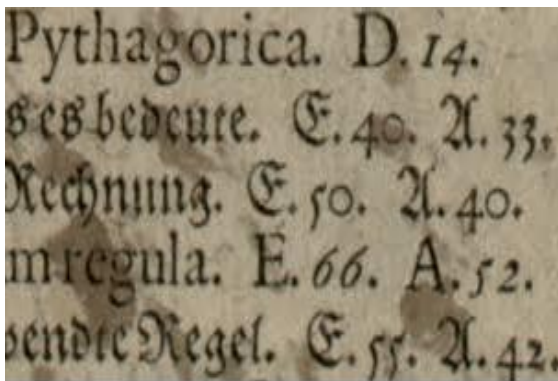 Pythagorica. D. 14.
s es bedeute. E. 40. A. 33.
Rechnung. E. 50. A. 40.
m regula. E. 66. A. 52.
wendte Regel. E. 55. A. 42.